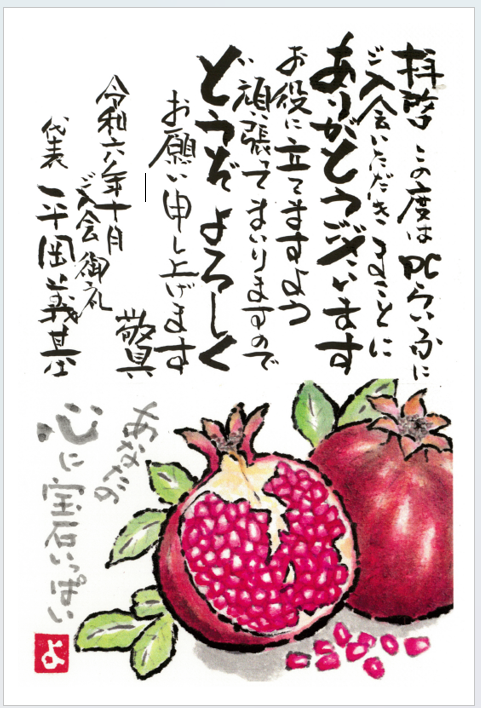 拝啓 この度はPCらいふに
ご入会いただきまことに
ありがとうございます
お役に立てますよう
頑張ってまいりますので
どうぞよろしく
お願い申し上げます
敬具
令和六年十月
ご入会御礼
代表 平岡義
あなたの
心に宝石いっぱい
よ